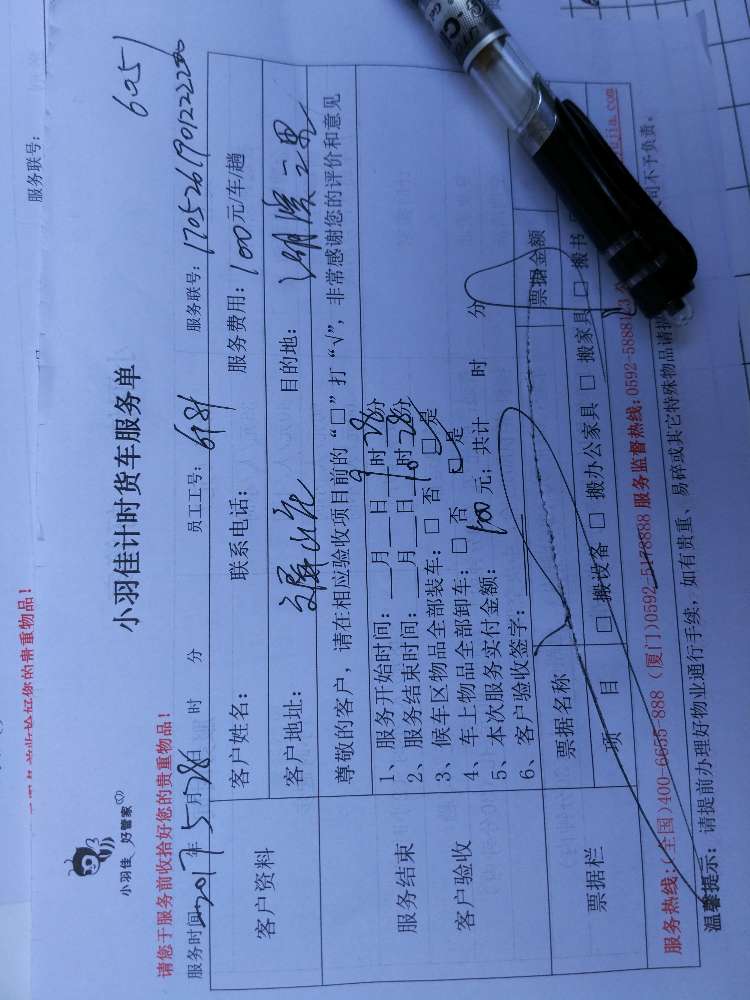 服务联号:
6051
小羽佳 好管家
小羽佳计时货车服务单
请您于服务前收拾好您的贵重物品!
服务时间 2017年5月28日 时 分 员工工号: 服务联号:
客户资料
客户姓名: 联系电话: 服务费用: 100元/车/趟
客户地址: 目的地:
尊敬的客户,请在相应验收项目前的“□”打“√”,非常感谢您的评价和意见
服务结束
客户验收
1、服务开始时间: 月 日 9时28分
2、服务结束时间: 月 日 时28分
3、候车区物品全部装车: □ 否 □ 是
4、车上物品全部卸车: □ 否 □ 是
5、本次服务实付金额: 100元;共计 时 分
6、客户验收签字:
票据栏
票据名称 票据金额
项 目 □ 搬设备 □ 搬办公家具 □ 搬家具 □ 搬书
服务热线:(全国)400-6655-888 (厦门)0592-5178888 服务监督热线:0592-5888
温馨提示: 请提前办理好物业通行手续,如有贵重、易碎或其它特殊物品请 司不予负责。